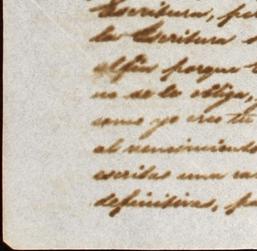 Escritura, per
la Escritura s
alfin porque t
no se le obliga,
como yo creo tu
al vencimiento
escribas una ca
definitiva, pa